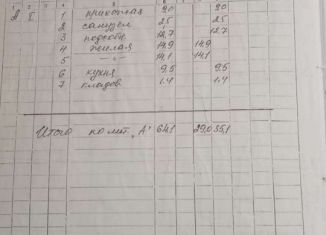 1 прихожая 9.0 9.0
2 санузел 2.5 2.5
3 подсобн. 12.7 12.7
4 жилая 14.9 14.9
5 —"— 14.1 14.1
6 кухня 9.5 9.5
7 кладов. 1.4 1.4
Итого по лит. "А" 64.1 29.0 35.1